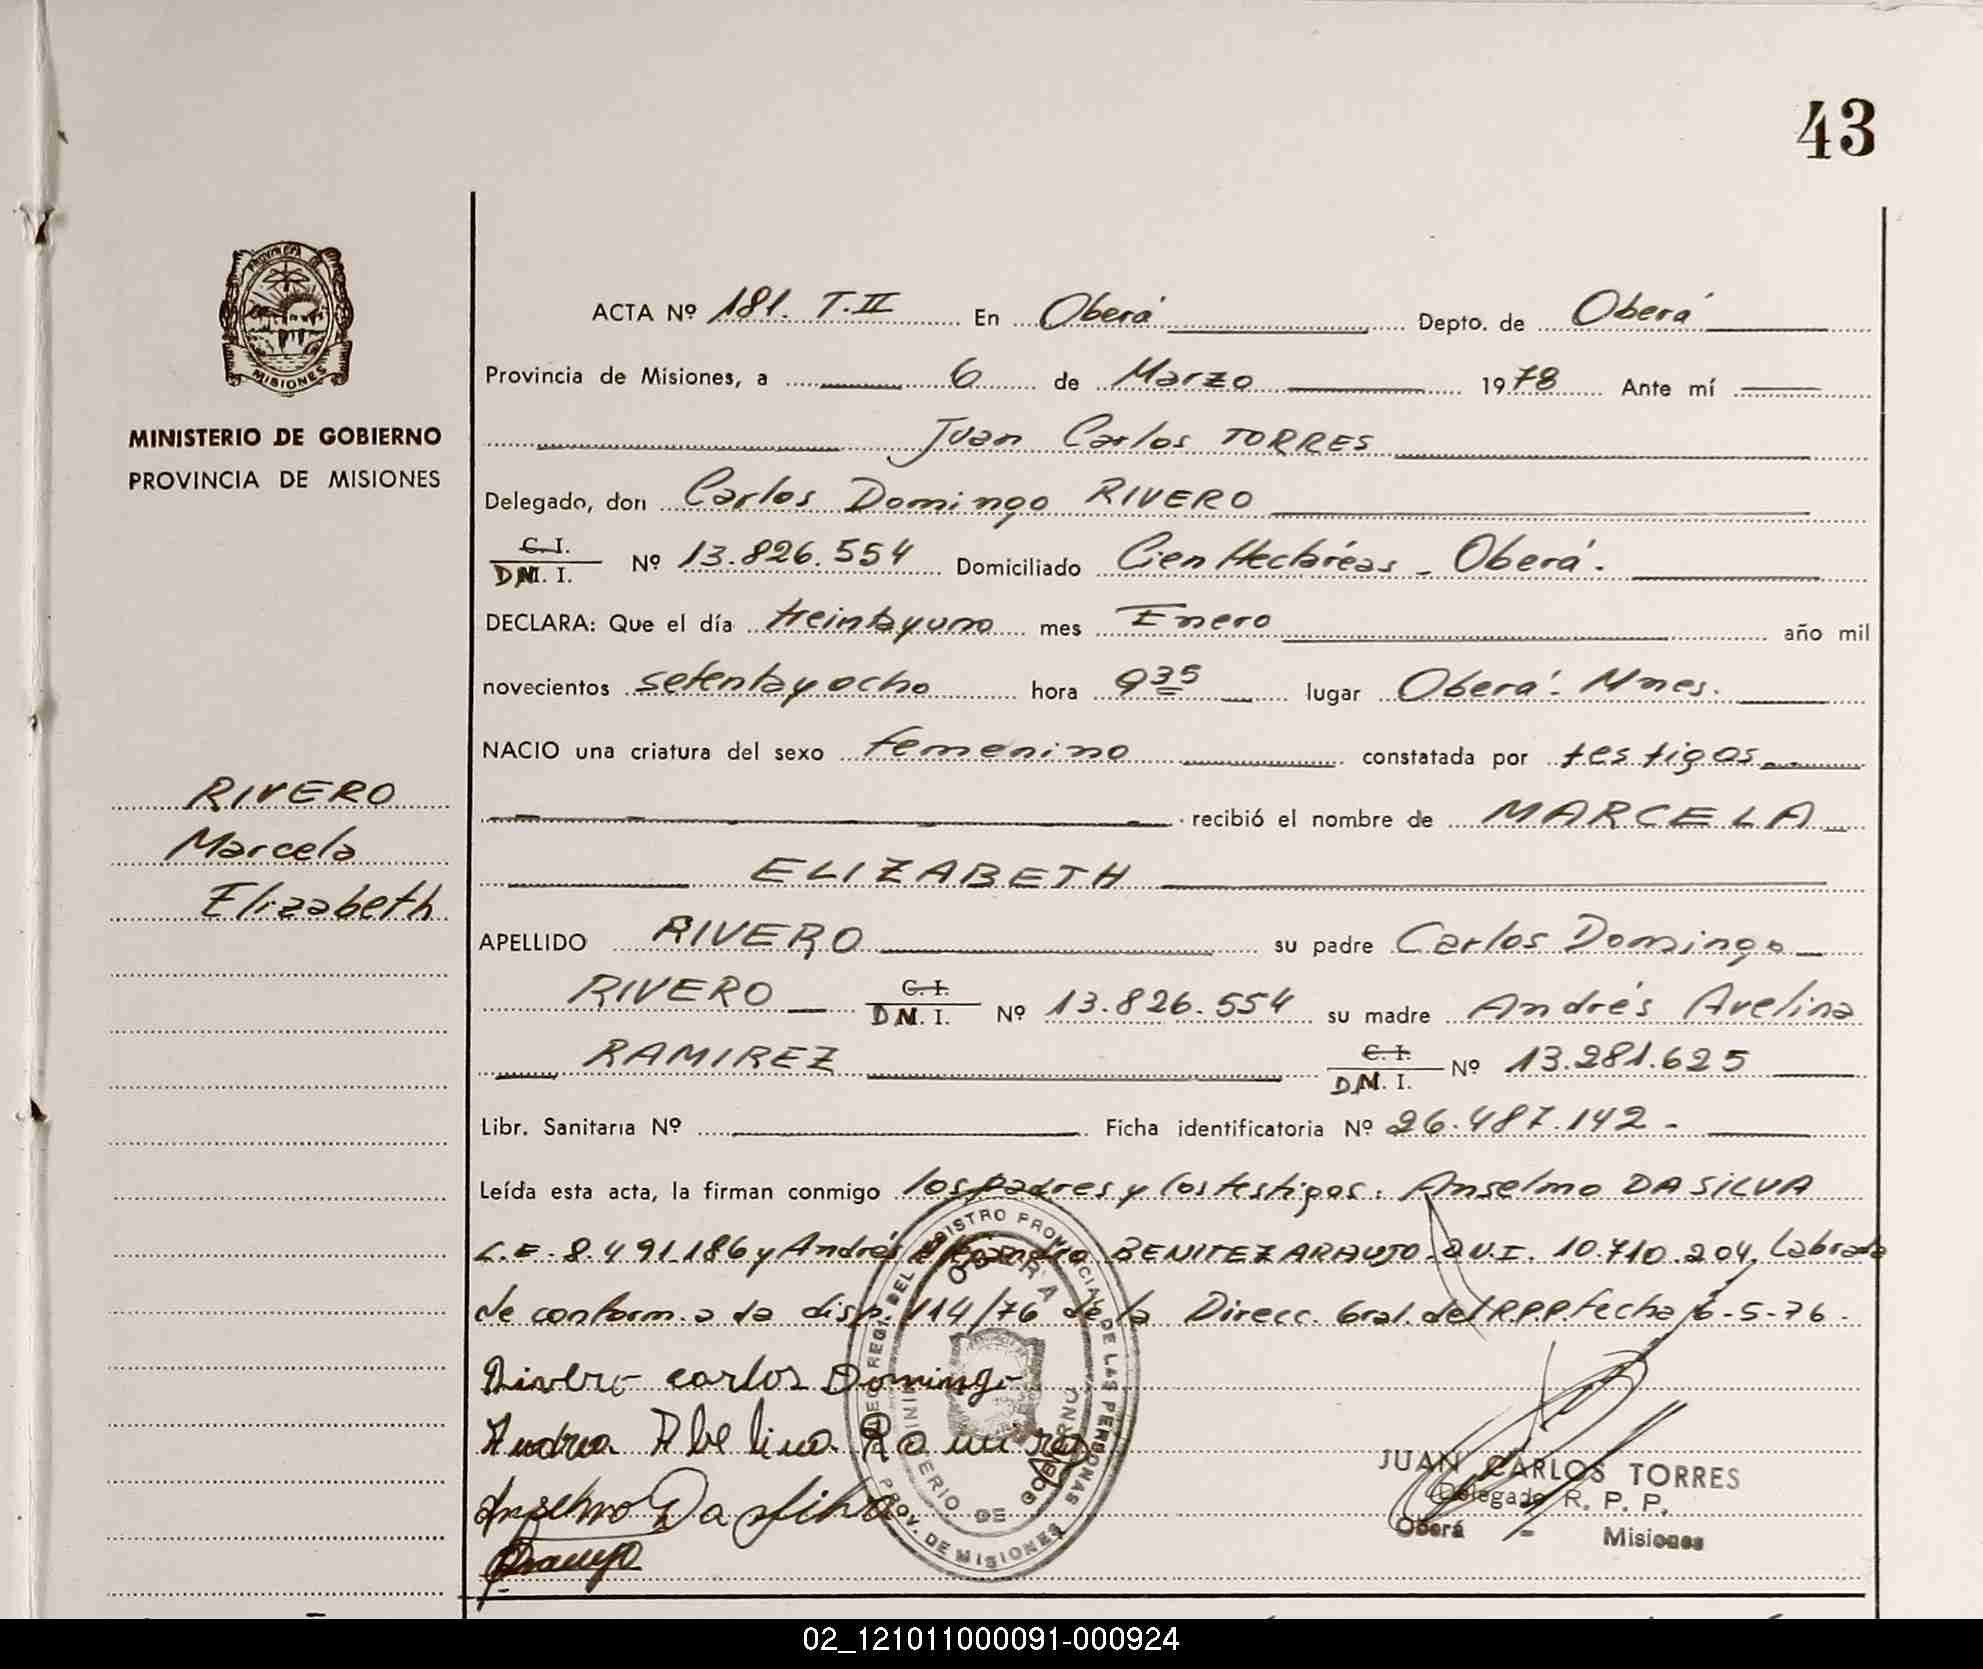 43
PROVINCIA DE
MISIONES
MINISTERIO DE GOBIERNO
PROVINCIA DE MISIONES
RIVERO
Marcela
Elizabeth
ACTA Nº 181. T.II En Oberá Depto. de Oberá
Provincia de Misiones, a 6 de Marzo 1978 Ante mí
Juan Carlos TORRES
Delegado, don Carlos Domingo RIVERO
C. I.
D.N. I. Nº 13.826.554 Domiciliado Cien Hectáreas - Oberá.
DECLARA: Que el día treintayuno mes Enero año mil
novecientos setentayocho hora 9 35 lugar Oberá- Mnes.
NACIO una criatura del sexo femenino constatada por testigos
recibió el nombre de MARCELA
ELIZABETH
APELLIDO RIVERO su padre Carlos Domingo
RIVERO C. I.
D N. I. Nº 13.826.554 su madre Andrés Avelina
RAMIREZ C. I.
D.N. I. Nº 13.281.625
Libr. Sanitaria Nº Ficha identificatoria Nº 26.487.142 -
Leída esta acta, la firman conmigo los padres y los testigos: Anselmo DA SILVA
L.E. 8.491.186 y Andrés BENITEZ ARAUJO D.N.I. 10.710.204. Labrada
de conform. a la disp. 114/76 de la Direcc. Gral. del R.P.P. fecha 6-5-76.
Rivero carlos Domingo
Andrea Abelina Ramirez
Anselmo Da silva
Araujo
REGISTRO PROVINCIAL DE LAS PERSONAS
OBERA
MINISTERIO DE GOBIERNO
PROV. DE MISIONES
JUAN CARLOS TORRES
Delegado R. P. P.
Oberá - Misiones
02_121011000091-000924